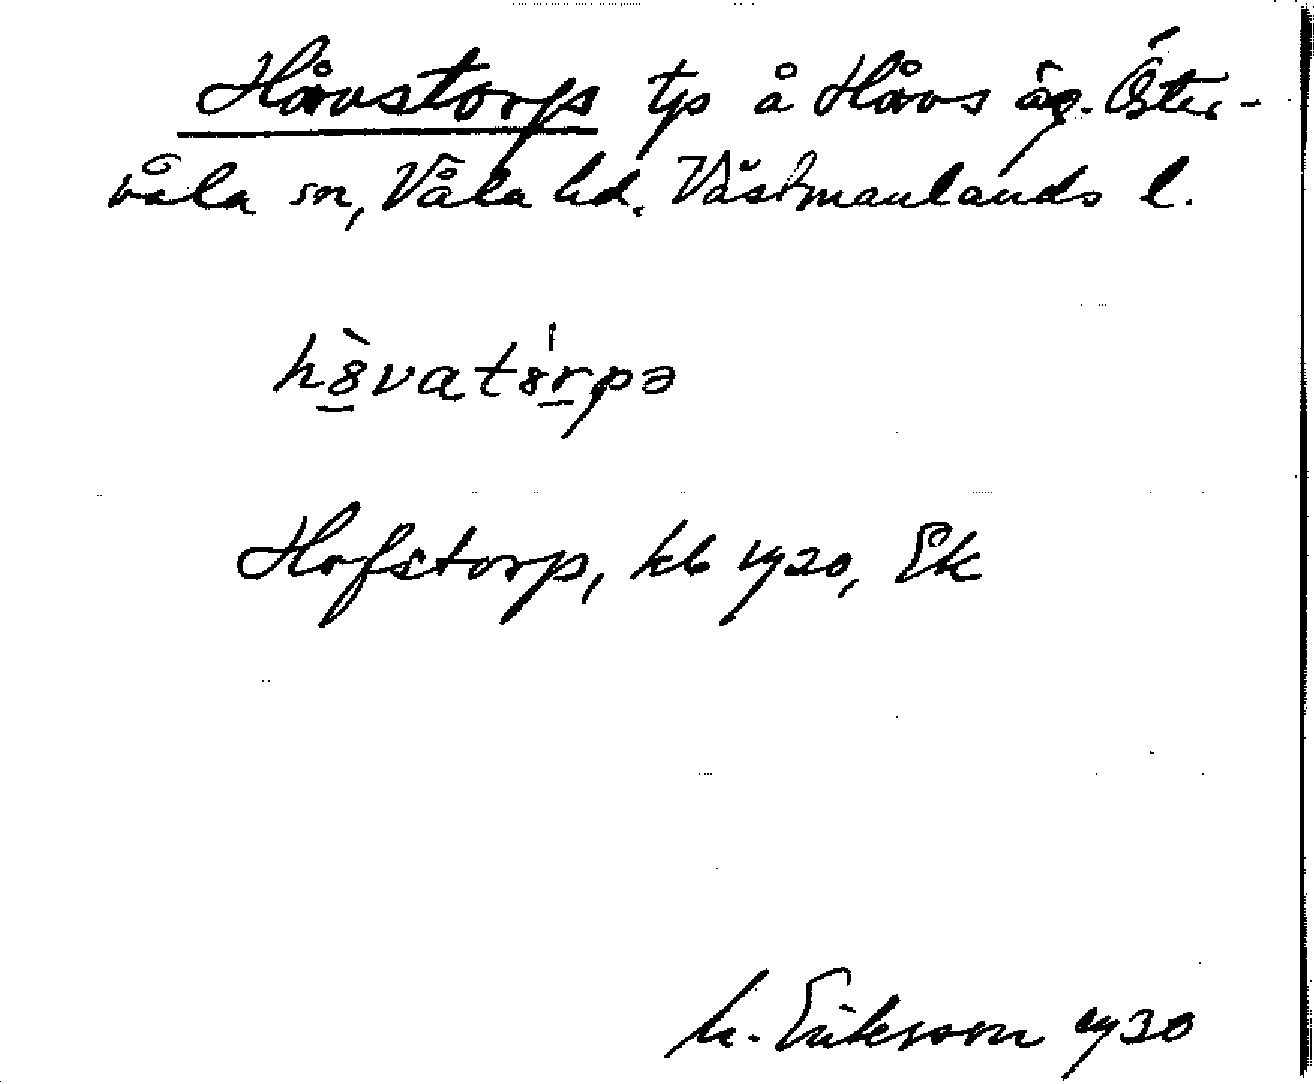 Håvstorp tp å Håvs äg. Öster-
våla sn, Våla hd. Västmanlands l.
hò̱vató̱rpə
Hofstorp, kb 1920, Ek
M. Eriksson 1920